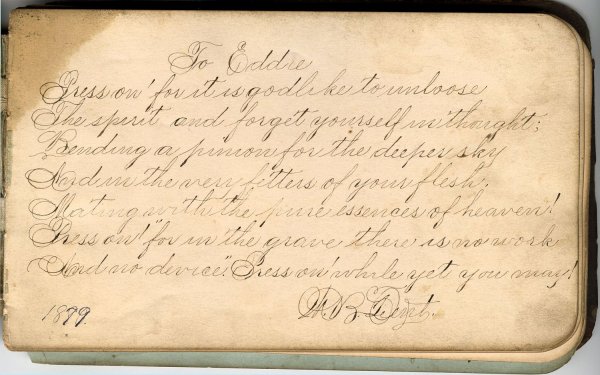 To Eddie
Press on! for it is godlike to unloose
The spirit and forget yourself in thought;
Bending a pinion for the deeper sky
And in the very fetters of your flesh,
Mating with the pure essences of heaven!
Press on! "for in the grave there is no work
And no device". Press on! while yet you may!
1879.